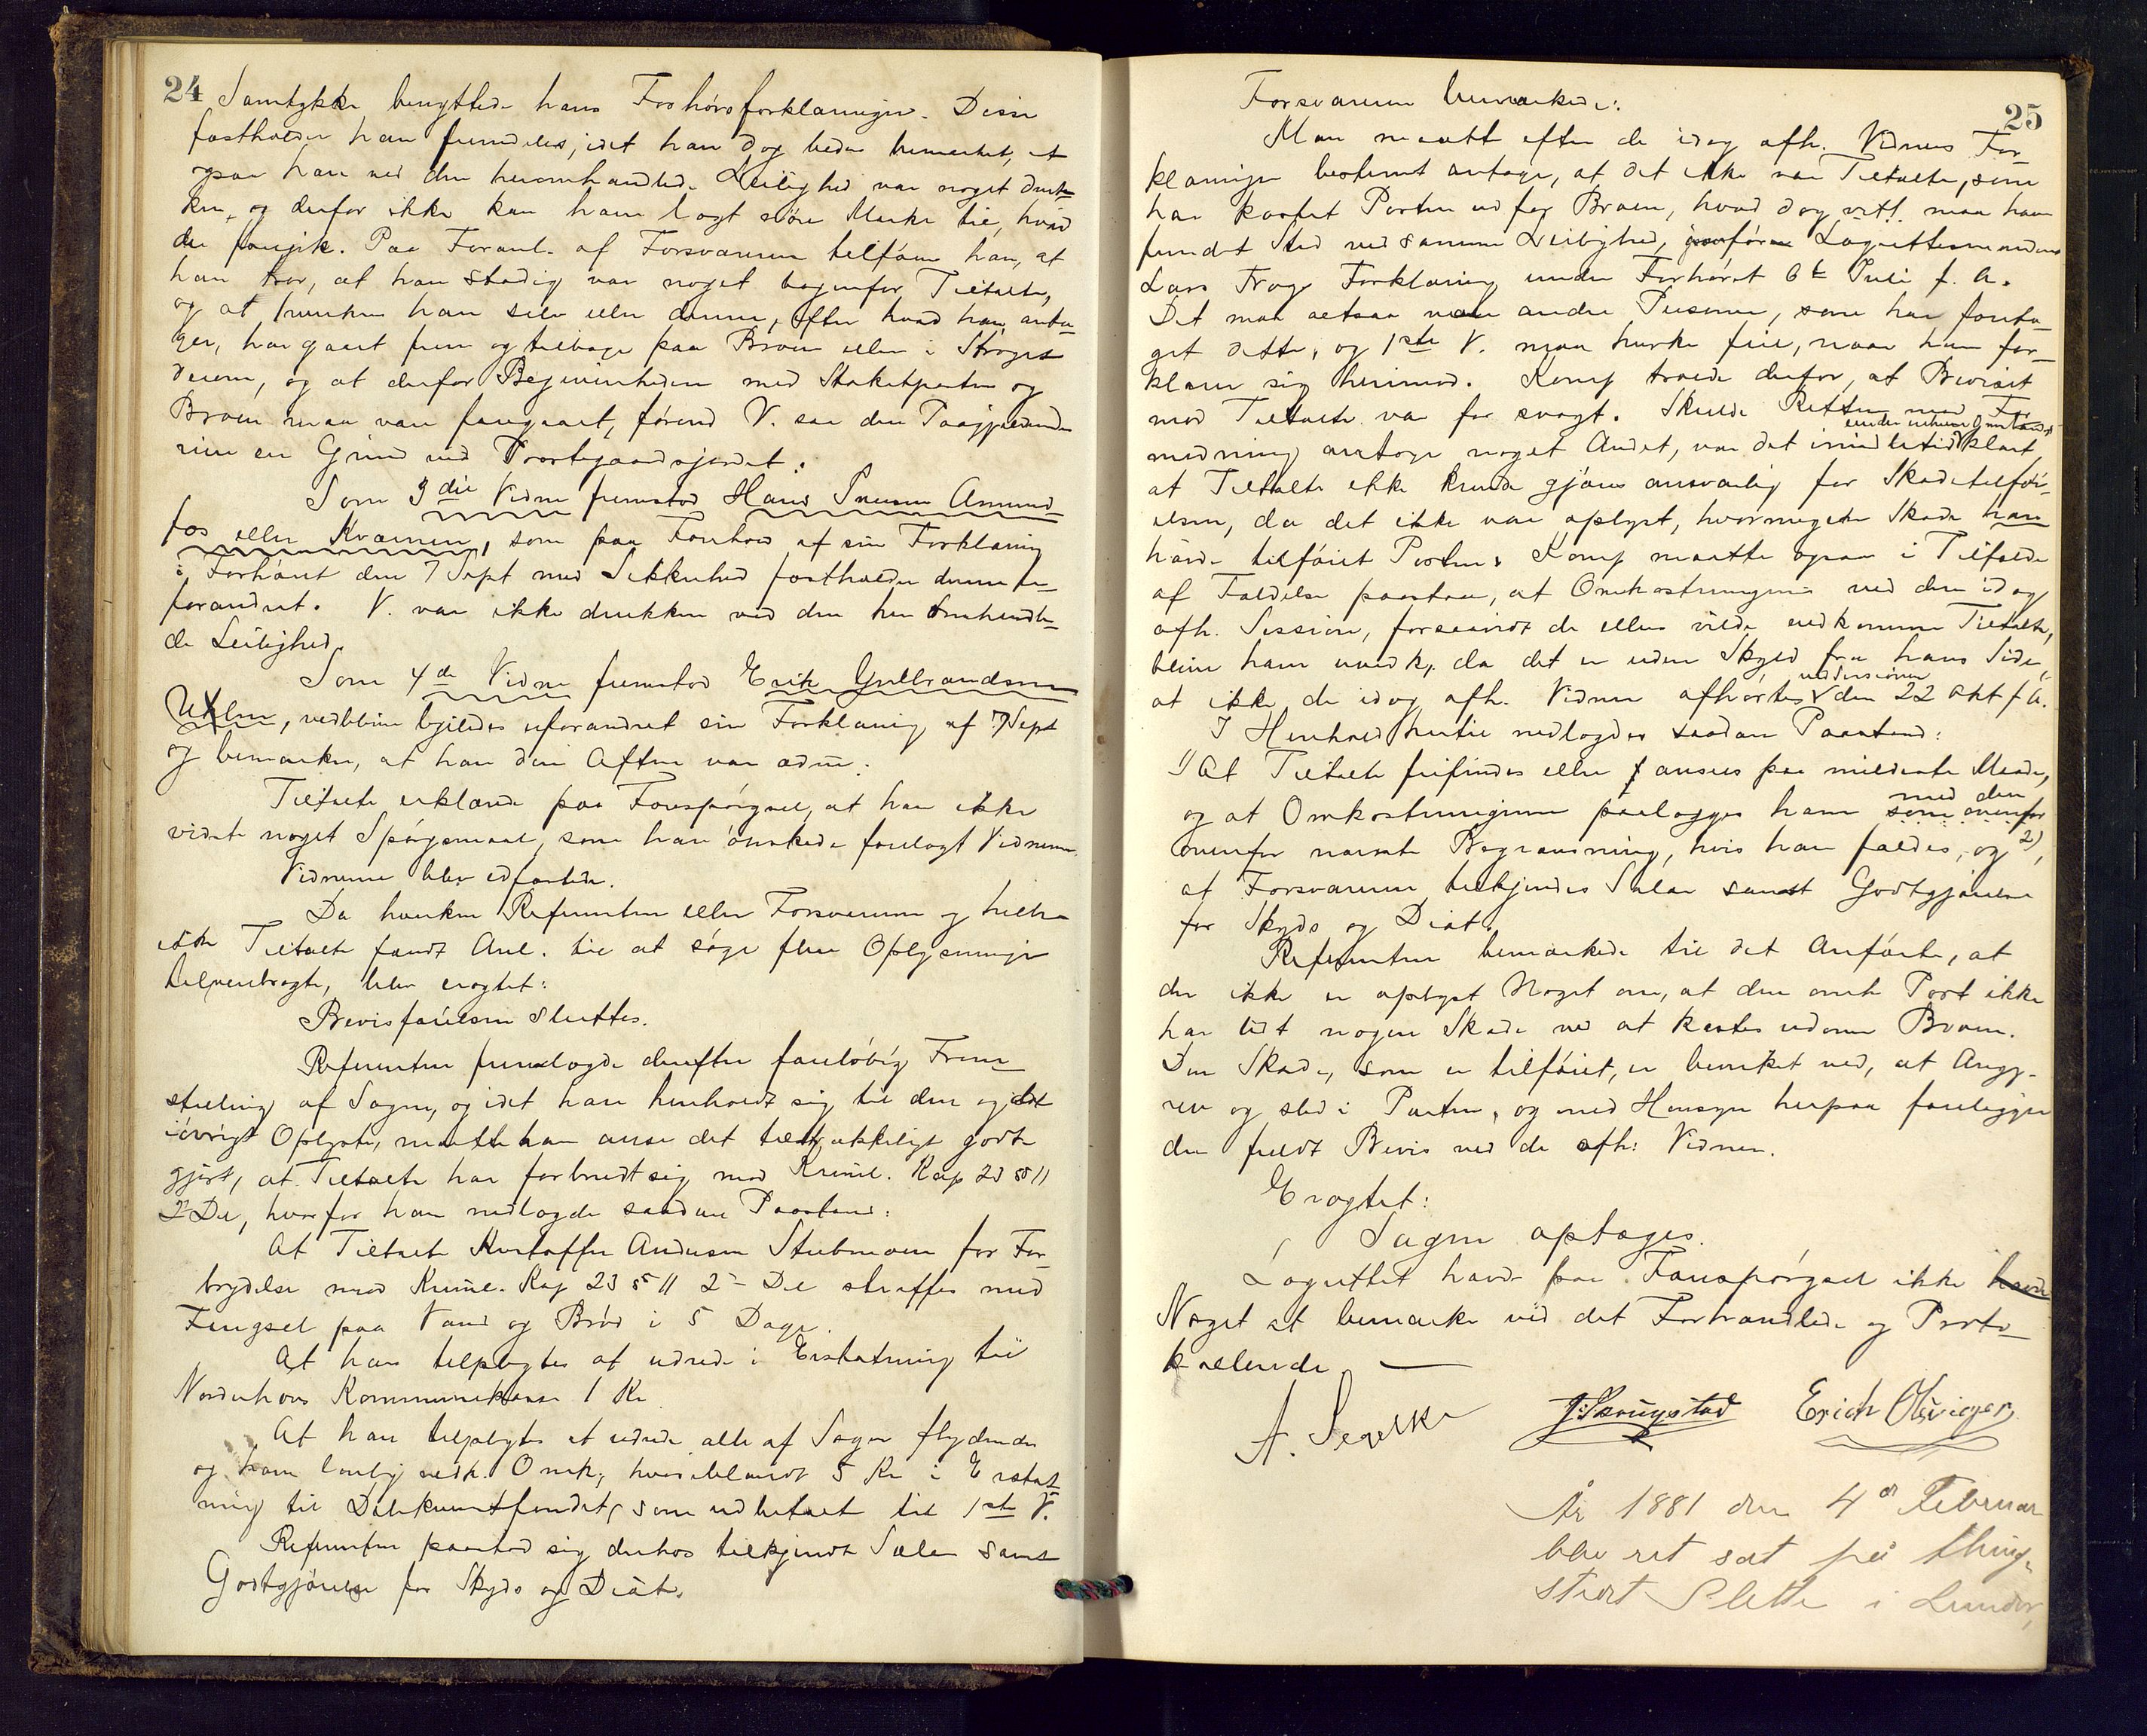 24
Samtykke benyttede hans Forhørsforklaringer. Disse
fastholder han fremdeles, idet han dog beder bemerket, at
ogsaa han ved den heromhandlede Leilighed var noget druk-
ken, og derfor ikke kan have lagt nöie Merke til, hvad
der foregik. Paa Foranl. af Forsvareren tilföier han, at
han tror, at han stadig var noget bagenfor Tiltalte,
og at hverken han selv eller denne, efter hvad han anta-
ger, har gaaet frem og tilbage paa Broen eller i Strøget
derom, og at derfor Begivenheden med Stakitporten og
Broen maa være foregaaet, førend V. saa den Paagjældende
rive en Grind ved Prestegaardsjordet.
Som 3die Vidne fremstod Hans Jensen Asmund-
fos eller Kværnen, som paa Forehold af sin Forklaring
i Forhöret den 7 Sept med Sikkerhed fastholder denne u-
forandret. V. var ikke drukken ved den her omhandle-
de Leilighed.
Som 4de Vidne fremstod Erik Gulbrandsen
, vedblivende uforandret sin Forklaring af 7 Sept
og bemærker, at han den Aften var ædru.
Tiltalte erklærede paa Forespörgsel, at han ikke
vidste noget Spörgsmaal, som han önskede forelagt Vidnerne.
Vidnerne blev edfæstede.
Da hverken Referenten eller Forsvareren og heller
ikke Tiltalte fandt Anl. til at söge flere Oplysninger
tilveiebragte, blev eragtet:
Bevisförelsen sluttes.
Referenten fremlagde derefter foreløbig Frem-
stilling af Sagen, og idet han henholdt sig til den og det
iövrigt Oplyste, maatte han anse det tilstrækkeligt godt-
gjort, at Tiltalte har forbrudt sig mod Kriml. Kap 23 § 11
2 Del, hvorfor han nedlagde saadan Paastand:
At Tiltalte Kristoffer Andersen Stubmoen for For-
brydelse mod Kriml. Kap 23 § 11 2- Del straffes med
Fængsel paa Vand og Bröd i 5 Dage.
At han tilpligtes at udrede i Erstatning til
Norderhovs Kommunekasse 1 Kr.
At han tilpligtes at udrede alle af Sagen flydende
og ham lovlig vedk. Omk, hvoriblandt 5 Kr i Erstat-
ning til Delinkventfondet, som udbetalt til 1ste V.
Referenten paastod sig derhos tilkjendt Salær samt
Godtgjörelse for Skyds og Diät.
25
Forsvareren bemærkede:
Man maatte efter de idag afh. Vidners For-
klaringer bestemt antage, at det ikke var Tiltalte, som
har kastet Porten ud for Broen, hvad dog vistl. maa have
fundet Sted ved samme Leilighed, jevnføre Lagrettesmanden
Lars Frogs Forklaring under Forhöret 6te Juli f. A.
Det maa altsaa være andre Personer, som har foreta-
get dette, og 1ste V. maa huske feil, naar han for-
klarer sig herimod. Komp troede derfor, at Beviset
mod Tiltalte var for svagt. Skulde Retten mod For-
modning antage noget Andet, var det imidlertid under enhver Omstænd. klart,
at Tiltalte ikke kunde gjöres ansvarlig for Skadetilföi-
elsen, da det ikke var oplyst, hvormegen Skade han
havde tilföiet Porten. Komp maatte ogsaa i Tilfælde
af Fældelse paastaa, at Omkostningerne ved den idag
afh. Session, forsaavidt de ellers vilde vedkomme Tiltalte,
blive ham uvedk, da det er uden Skyld fra hans Side,
at ikke de idag afh. Vidner afhørtes ved Sessionen den 22 Okt f A.
I Henhold hertil nedlagdes saadan Paastand:
1) At Tiltalte frifindes eller ansees paa mildeste Maade,
og at Omkostningerne paalægges ham som ovenfor med den
ovenfor nævnte Begrænsning, hvis han fældes, og 2),
at Forsvareren tilkjendes Salær samt Godtgjörelse
for Skyds og Diät.
Referenten bemærkede til det Anförte, at
der ikke er oplyst Noget om, at den omh Port ikke
har lidt nogen Skade ved at kastes udover Broen.
Den Skade, som er tilföiet, er bevirket ved, at Angj.
rev og sled i Porten, og med Hensyn herpaa foreligger
der fuldt Bevis ved de afh. Vidner.
Eragtet:
Sagen optages.
Lagrettet havde paa Forespörgsel ikke havde
Noget at bemærke ved det Forhandlede og Proto-
kollerede.
A. Segelke J. Skougstad Erich Olsviger
År 1881 den 4de Februar
blev ret sat på thing-
stedet Sletta i Lunder,